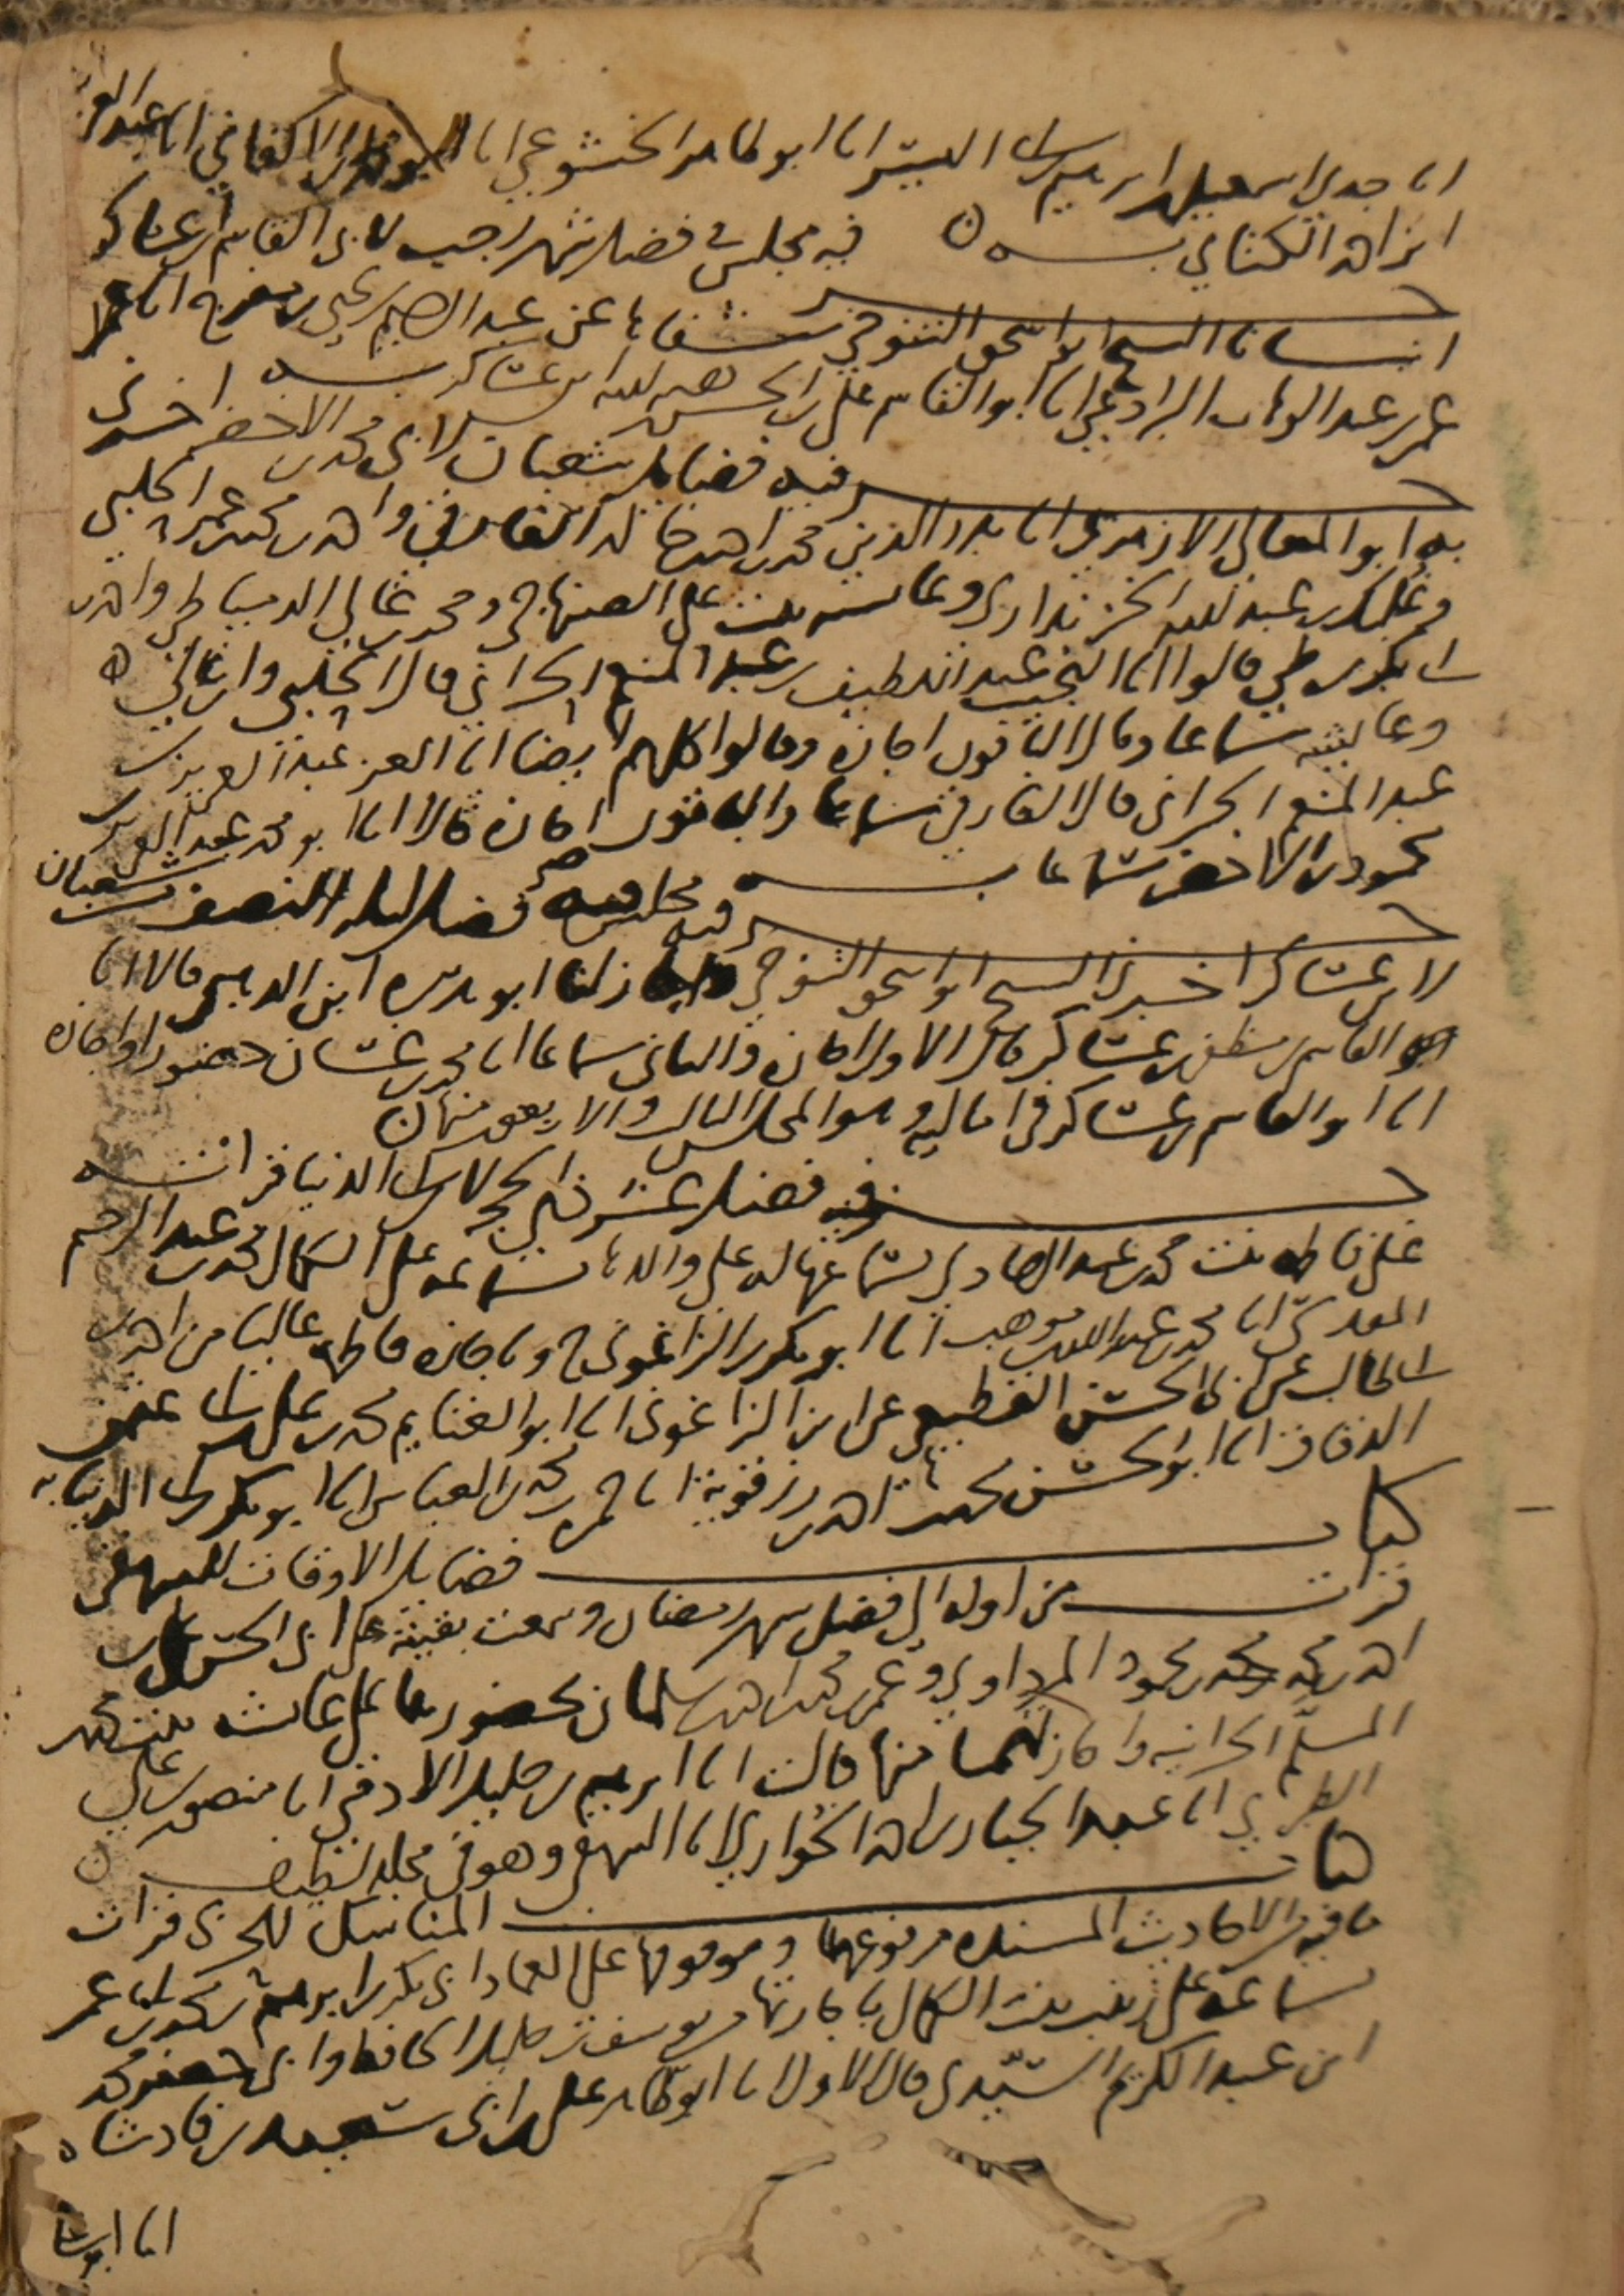 انا جدي اسمعيل بن ابرهيم بن ابي اليسر انا ابو طاهر الخشوعي انا ابو محمد الاكفاني انا عبد العز
ابن احمد الكتاني به فيه مجلس في فضل شهر رجب لابي القاسم بن عساكر
انبانا الشيخ ابو اسحق التنوخي شفاها عن عبد الرحيم بن يحيى بن مفرج انا
عمر بن عبد الوهاب البرادعي انا ابو القاسم علي بن الحسن بن هبه الله ابن عساكر به
جزء فيه فضايل شعبان لابي محمد بن الاخضر اخبرني
به ابو المعالي الازهري انا بدر الدين محمد بن احمد بن خالد الفارقي واحمد بن محمد بن عمر الحلبي
وغلبك بن عبد الله الخزنداري وعائشه بنت علي الصنهاجي ومحمد بن غالي الدمياطي واحمد بن
ابي بكر بن طي قالوا انا النجيب عبد اللطيف بن عبد المنعم الحراني قال الحلبي وابن غالي
وعايشه سماعا وقال الباقون اجازه وقالوا كلهم ايضا انا العز عبد العزيز بن
عبد المنعم الحراني قال الفارقي سماعا والباقون اجازه قالا انا ابو محمد عبد العزيز بن
محمود بن الاخضر سماعا به
جزء فيه مجلس فيه فضل ليله النصف من شعبان
لابن عساكر اخبرنا الشيخ ابو اسحق التنوخي واجاز لنا ابو هريره ابن الذهبي قالا انا
ابو القاسم بن مظفر بن عساكر قال الاول اجازه والثاني سماعا انا محمد بن غسان حضورا واجازه
انا ابو القاسم بن عساكر في اماليه وهو المجلس الثالث والاربعون منها
جزء فيه فضل عشر ذي الحجه لابن ابي الدنيا قراته
على فاطمه بنت محمد بن عبد الهادي بسماعها له على والدها بسماعه على الكمال محمد بن عبد الرحيم
المقدسي انا محمد بن عبد الله بن موهب انا ابو بكر بن الزاغوني ح وباجازه فاطمه عاليا من احمد بن
ابي طالب عن ابي الحسن القطيعي عن ابن الزاغوني انا ابو الغنايم محمد بن علي بن ابي عثمن
الدقاق انا ابو الحسن محمد بن احمد بن رزقويه انا حمزه بن محمد بن العباس انا ابو بكر بن ابي الدنيا به
كتاب فضايل الاوقات للبيهقي
قرات من اوله الى فضل شهر رمضان وسمعت بقيته على ابي الحسن علي بن
احمد بن محمد بن محمود المرداوي وعمر بن محمد بن احمد بن سلمان بحضورهما على عائشه بنت محمد
المسلم الحرانيه واجازتهما منها قالت انا ابرهيم بن خليل الادمي انا منصور بن علي
الطبري انا عبد الجبار بن احمد الخواري انا البيهقي وهو في مجلد لطيف
كتاب المناسك للحربي قرات
ما فيه من الاحاديث المسنده مرفوعها وموقوفها على العماد ابي بكر بن ابرهيم بن محمد بن العز عمر
بسماعه على زينب بنت الكمال باجازتها من يوسف بن خليل الحافظ وابي جعفر محمد
ابن عبد الكريم السيدي قال الاول انا ابو طاهر علي بن ابي سعيد بن فادشاه
انا ابو